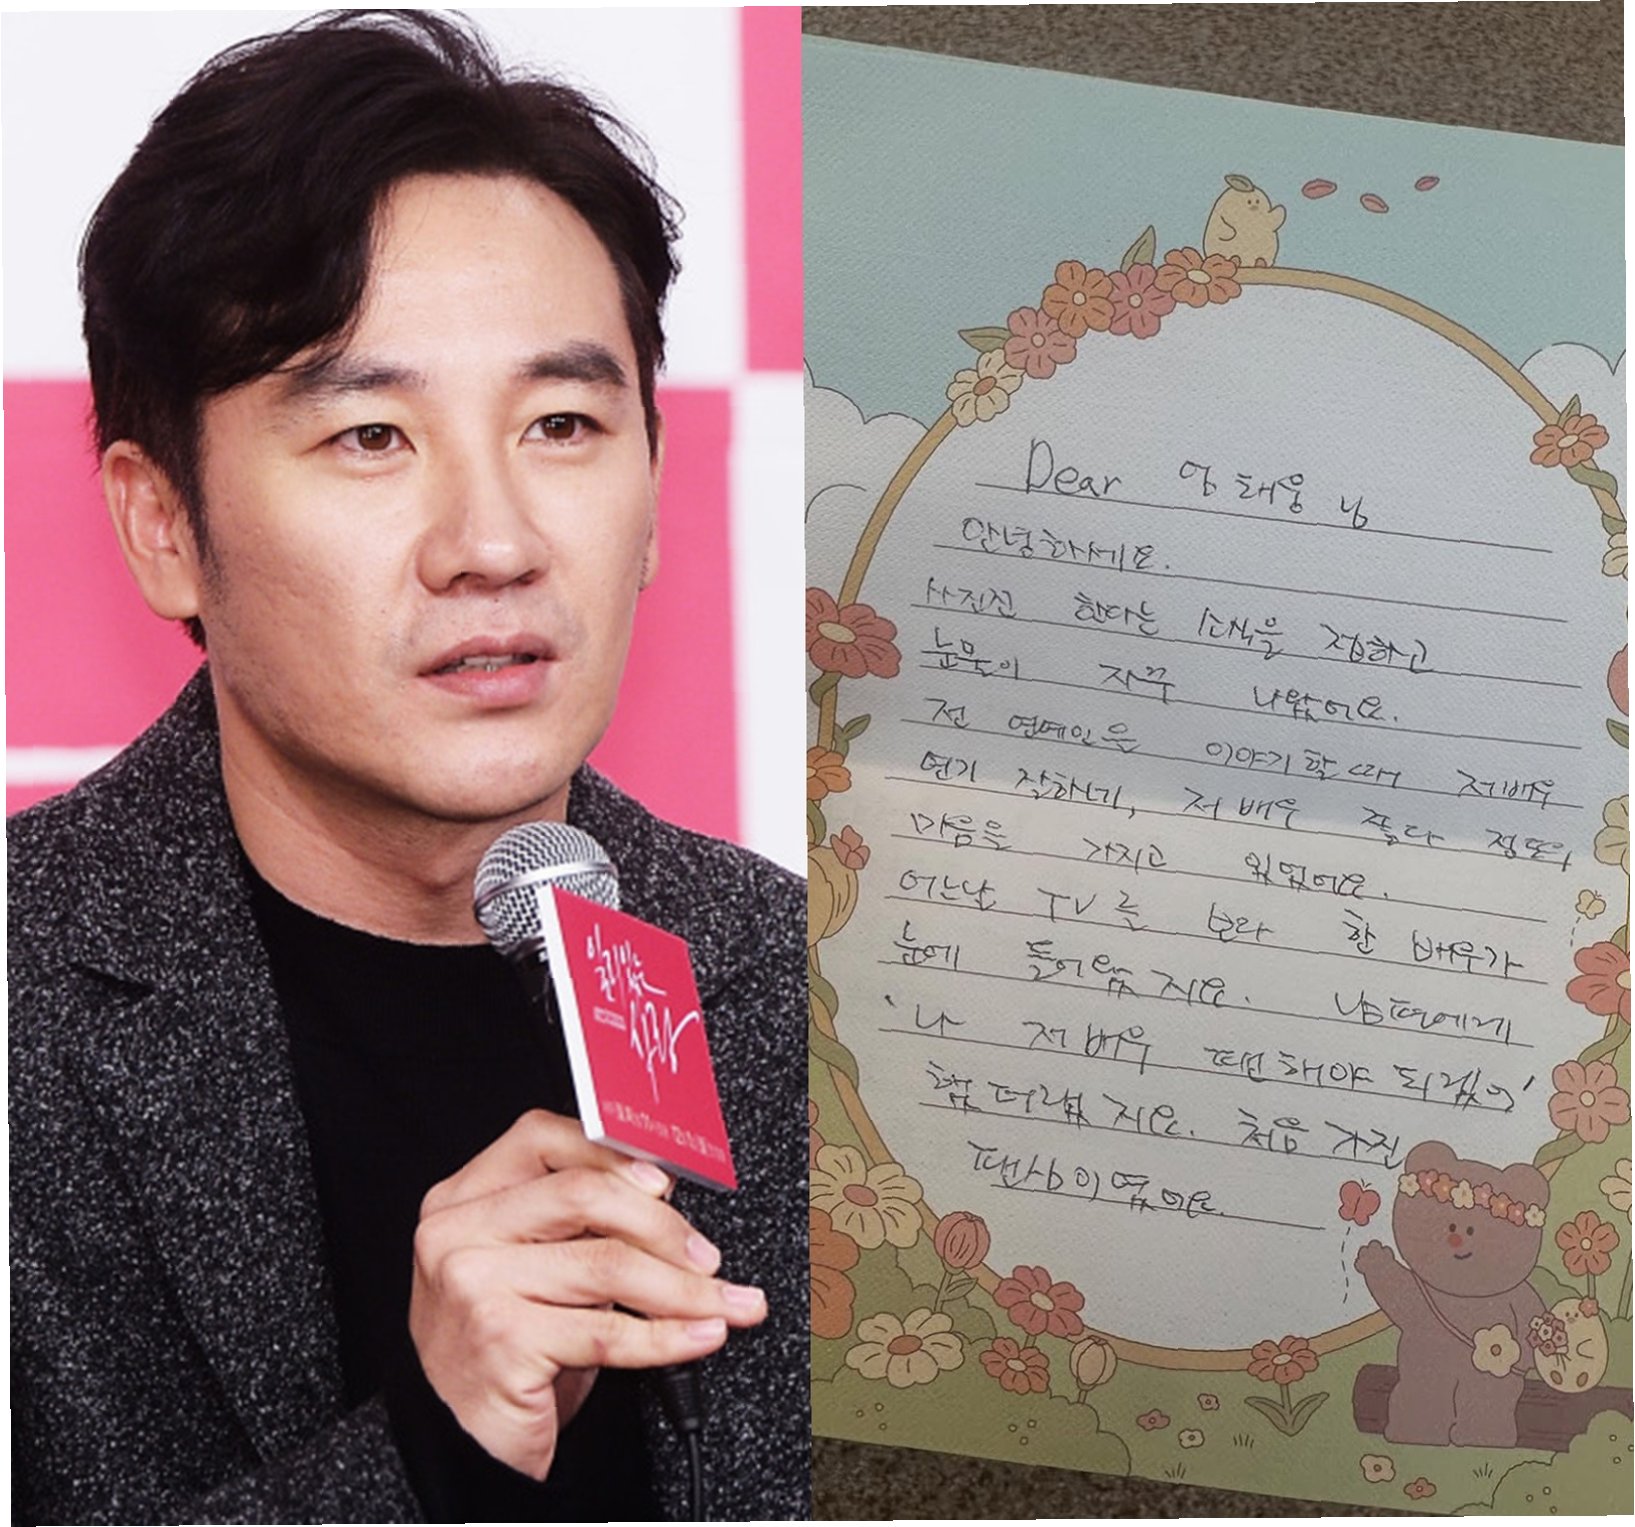 일리있는
사랑
Dear 엄태웅 님
안녕하세요.
사진전 한다는 소식을 접하고
눈물이 자꾸 나왔어요.
전 연예인을 이야기할때 저배우
연기 잘하네, 저 배우 좋다 정도의
마음을 가지고 있었어요.
어느날 TV를 보라 한 배우가
눈에 들어왔지요. 남편에게
'나 저 배우 팬 해야 되겠어'
했더랬지요. 처음 가진
팬심이였어요.